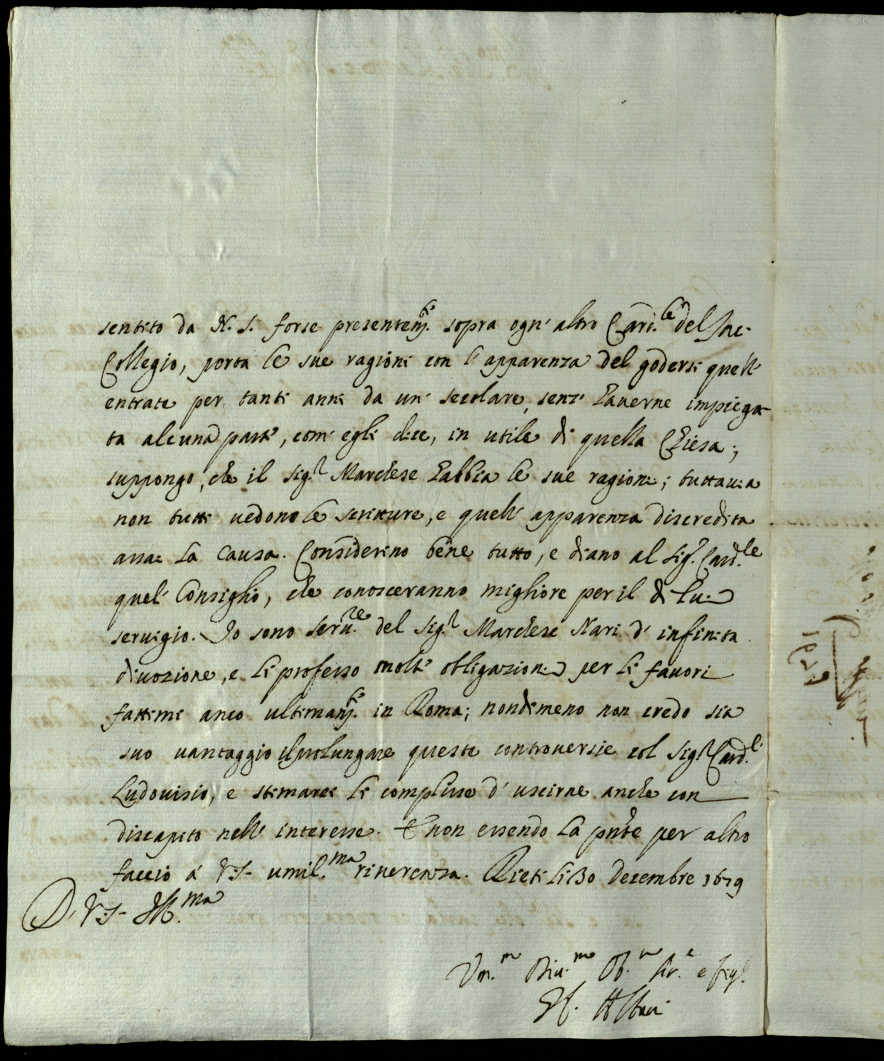 sentito da N. S. forse presentemte. sopra ogn' altro Card.le del Sac.
Collegio, porta le sue ragioni con l'apparenza del godersi quell'
entrate per tanti anni da un' secolare, senz' haverne impiega-
ta alcuna parte, com' egli dice, in utile di quella Chiesa;
suppongo, che il Sig.r Marchese habbia le sue ragioni; tuttavia
non tutti vedono le scritture, e quell' apparenza discredita
assai la causa. Considerino bene tutto, e diano al Sig.r Card.le
quel' Consiglio, che conosceranno migliore per il di lui
servigio. Io sono serv.re del Sig.r Marchese Nari d' infinita
divozione, e li professo molte obligazioni per li favori
fattimi anco ultimamte. in Roma; nondimeno non credo sia
suo vantaggio il prolungare queste controversie col Sig.r Card.le
Ludovisio, e stimarei li complisse d' uscirne anche con
discapito nell' interesse. E non essendo la pnte per altro
faccio à V.S. umil.ma riverenza. Rieti li 30 Decembre 1679
D. V.S. Ill.ma